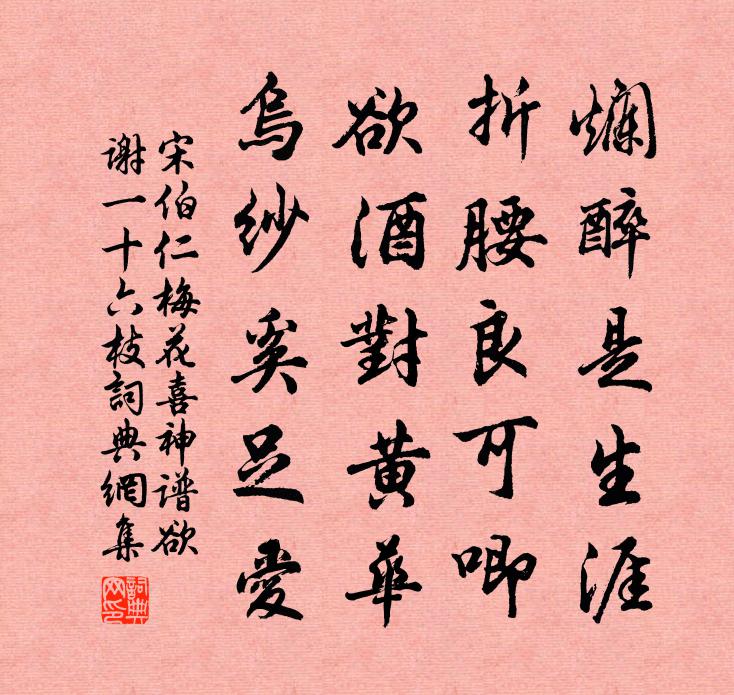 爛醉是生涯
折腰良可唧
欲酒對黃華
烏紗奚足愛
宋伯仁梅花喜神譜欲
謝一十六枝詞典網集
詞典網印